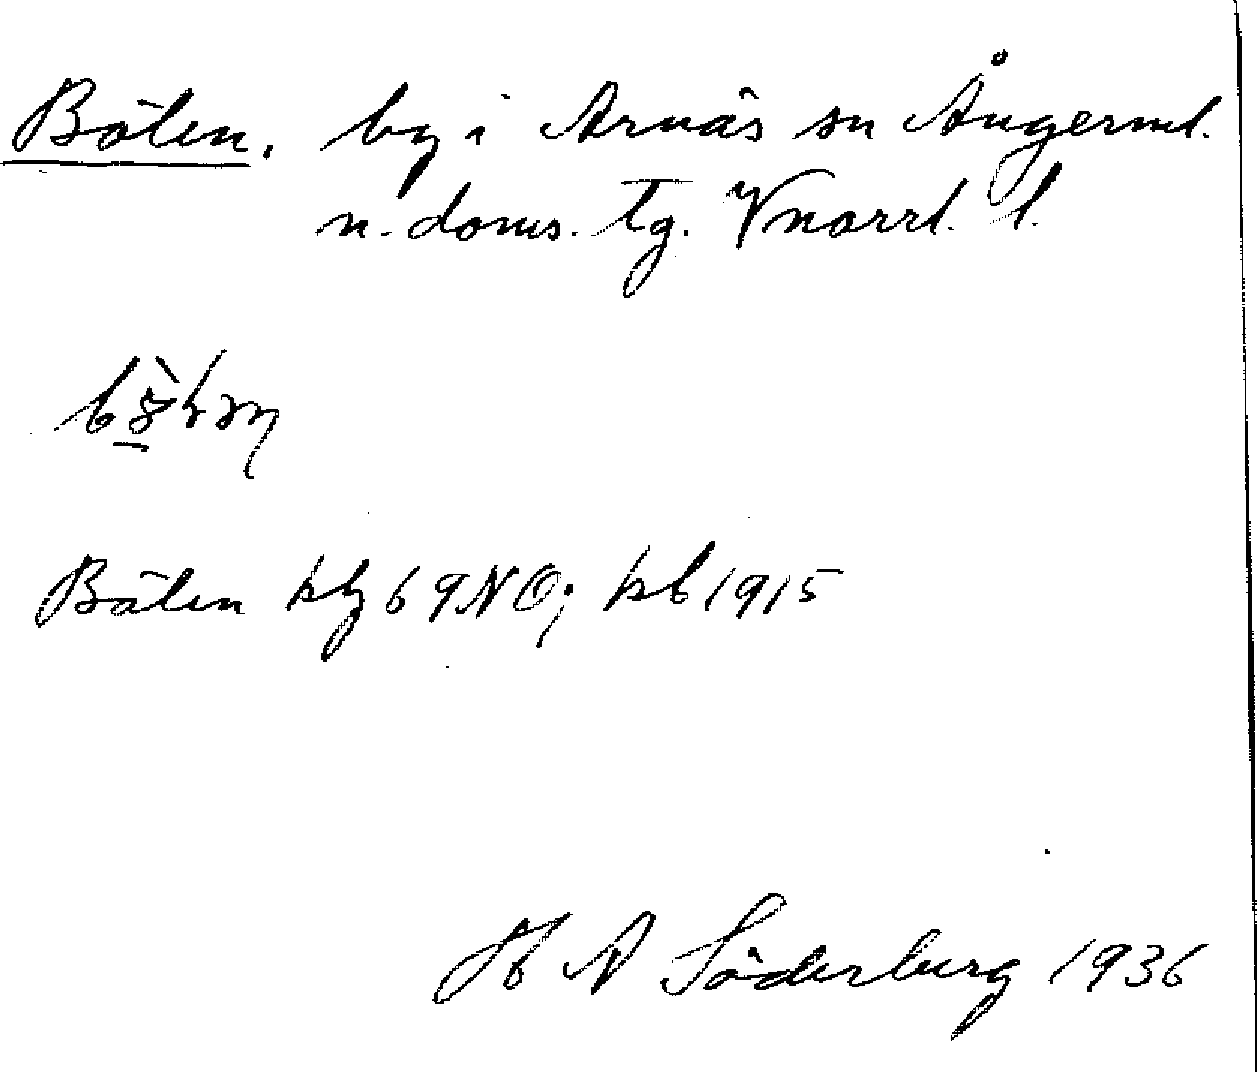 Bölen. by i Arnäs sn Ångerml.
n. doms. tg. Vnorrl. l.
Bölen kbg 69NO; kb 1915
H A Söderberg 1936